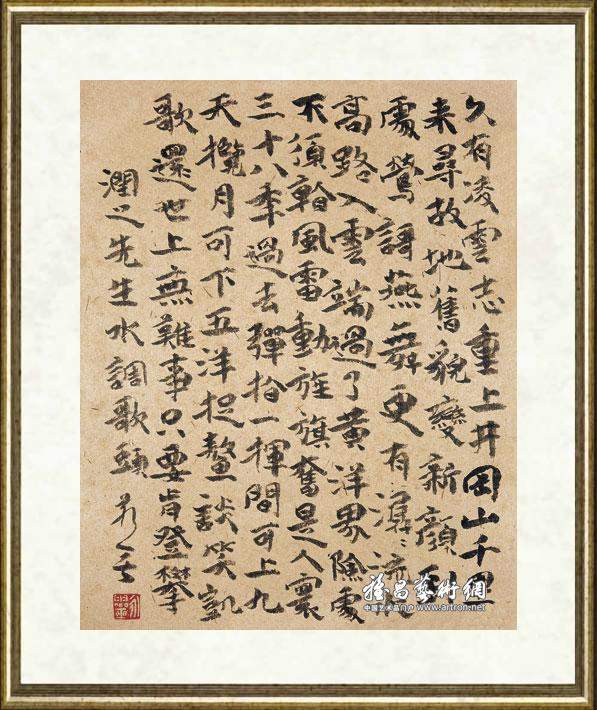 久有凌雲志重上井岡山千里
来尋故地舊貌變新顏到
處鶯謌燕舞更有潺〻流
高路入雲端過了黄洋界險處
不須風雷動旌旗奮是人寰
三十八秊過去彈指一揮間可上九
天攬月可下五洋捉鰲談笑凱
歌還世上無難事只要肯登攀
潤之先生水調歌頭
雅昌藝術網
中国艺术品门户 www.artron.net